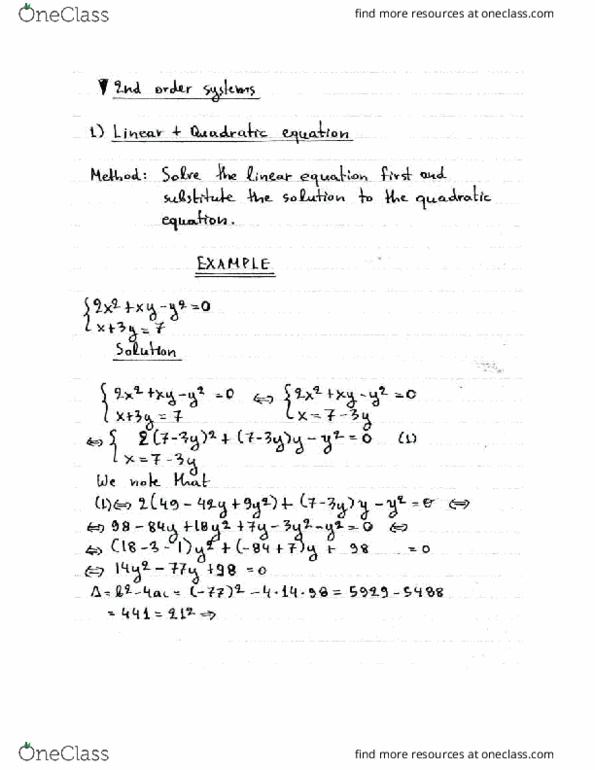 OneClass
find more resources at oneclass.com
2nd order systems
1) Linear + Quadratic equation
Method: Solve the linear equation first and
substitute the solution to the quadratic
equation.
EXAMPLE
{2x²+xy-y²=0
x+3y=7
Solution
{2x²+xy-y²=0 ⇔ {2x²+xy-y²=0
x+3y=7 x=7-3y
⇔ { 2(7-3y)²+(7-3y)y-y²=0 (1)
x=7-3y
We note that
(1)⇔ 2(49-42y+9y²)+(7-3y)y-y²=0 ⇔
⇔ 98-84y+18y²+7y-3y²-y²=0 ⇔
⇔ (18-3-1)y²+(-84+7)y+98 =0
⇔ 14y²-77y+98=0
Δ=b²-4ac=(-77)²-4·14·98=5929-5488
=441=21² ⇒
OneClass
find more resources at oneclass.com